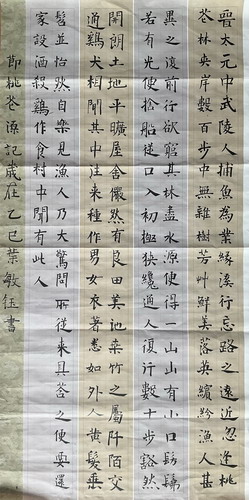 晉太元中武陵人捕魚為業緣溪行忘路之遠近忽逢桃
花林夾岸數百步中無雜樹芳艸鮮美落英繽紛漁人甚
異之復前行欲窮其林盡水源便得一山山有小口髣髴
若有光便捨船從口入初極狹纔通人復行數十步豁然
開朗土地平曠屋舍儼然有良田美池桑竹之屬阡陌交
通鷄犬相聞其中往來種作男女衣著悉如外人黃髮垂
髫並怡然自樂見漁人乃大驚問所從來具答之便要還
家設酒殺鷄作食村中聞有此人
節桃花源記歲在乙巳葉敏鈺書